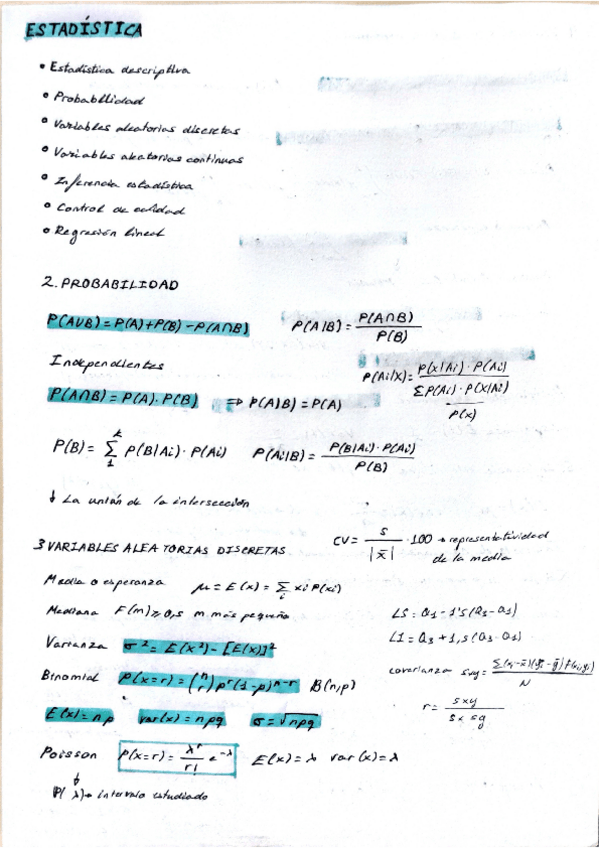 ESTADÍSTICA
• Estadística descriptiva
• Probabilidad
• Variables aleatorias discretas
• Variables aleatorias continuas
• Inferencia estadística
• Control de calidad
• Regresión lineal
2. PROBABILIDAD
P(A∪B) = P(A) + P(B) - P(A∩B)
P(A|B) = P(A∩B) / P(B)
Independientes
P(Ai|X) = P(X|Ai) · P(Ai) / ΣP(Ai) · P(X|Ai)
P(x)
P(A∩B) = P(A) · P(B) ⇒ P(A|B) = P(A)
P(B) = Σ₁ᵏ P(B|Ai) · P(Ai)
P(Ai|B) = P(B|Ai) · P(Ai) / P(B)
↓ La unión de la intersección
3 VARIABLES ALEATORIAS DISCRETAS
CV = s / |x̄| · 100 → representatividad
de la media
Media o esperanza μ = E(x) = Σᵢ xi P(xi)
Mediana F(m) ≥ 0,5 m más pequeño
LS = Q₁ - 1'5(Q₃ - Q₁)
Varianza σ² = E(x²) - [E(x)]²
LI = Q₃ + 1,5(Q₃ - Q₁)
Binomial P(x=r) = (n r) pʳ (1-p)ⁿ⁻ʳ B(n,p)
covarianza sxy = Σ(xi - x̄)(yi - ȳ) f(xi,yi) / N
E(x) = np var(x) = npq σ = √npq
r = sxy / sx sy
Poisson P(x=r) = λʳ / r! e^-λ E(x) = λ var(x) = λ
↓
P(λ) → intervalo estudiado